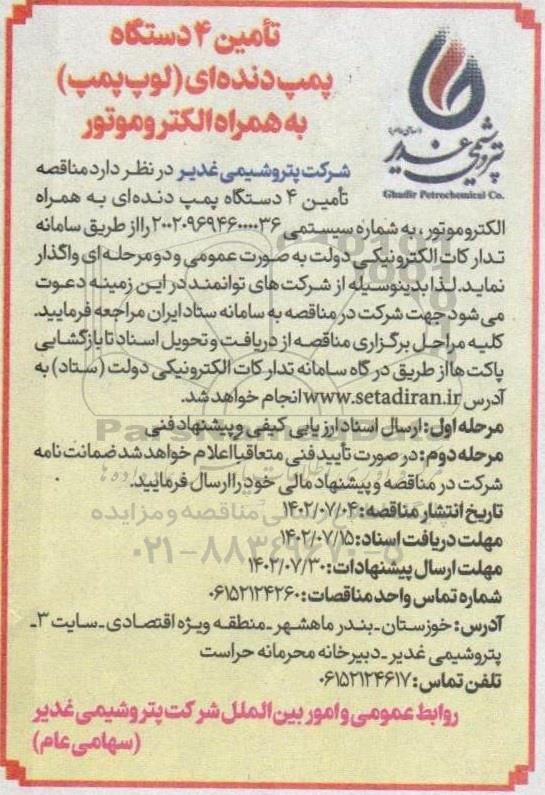 تأمین ۴ دستگاه
پمپ دنده‌ای (لوپ پمپ)
به همراه الکتروموتور
پتروشیمی غدیر
(سهامی عام)
Ghadir Petrochemical Co.
شرکت پتروشیمی غدیر در نظر دارد مناقصه
تأمین ۴ دستگاه پمپ دنده‌ای به همراه
الکتروموتور، به شماره سیستمی ۲۰۰۲۰۹۶۹۴۶۰۰۰۰۳۶ را از طریق سامانه
تدارکات الکترونیکی دولت به صورت عمومی و دو مرحله‌ای واگذار
نماید. لذا بدینوسیله از شرکت های توانمند در این زمینه دعوت
می شود جهت شرکت در مناقصه به سامانه ستاد ایران مراجعه فرمایید.
کلیه مراحل برگزاری مناقصه از دریافت و تحویل اسناد تا بازگشایی
پاکت ها از طریق درگاه سامانه تدارکات الکترونیکی دولت (ستاد) به
آدرس www.setadiran.ir انجام خواهد شد.
مرحله اول: ارسال اسناد ارزیابی کیفی و پیشنهاد فنی
مرحله دوم: در صورت تأیید فنی متعاقبا اعلام خواهد شد ضمانت نامه
شرکت در مناقصه و پیشنهاد مالی خود را ارسال فرمایید.
تاریخ انتشار مناقصه: ۱۴۰۲/۰۷/۰۴
مهلت دریافت اسناد: ۱۴۰۲/۰۷/۱۵
مهلت ارسال پیشنهادات: ۱۴۰۲/۰۷/۳۰
شماره تماس واحد مناقصات: ۰۶۱۵۲۱۲۴۲۶۰
آدرس: خوزستان - بندر ماهشهر - منطقه ویژه اقتصادی - سایت ۳ -
پتروشیمی غدیر - دبیرخانه محرمانه حراست
تلفن تماس: ۰۶۱۵۲۱۲۴۶۱۷
روابط عمومی و امور بین الملل شرکت پتروشیمی غدیر
(سهامی عام)
ParsNamadData
۰۲۱-۸۸۳۴۹۶۷۰-۵